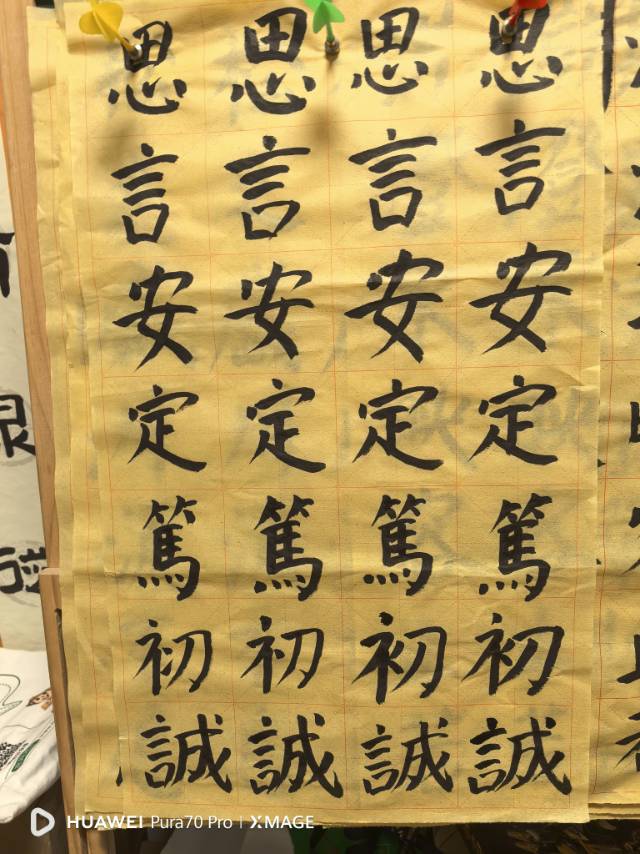 思思思思
言言言言
安安安安
定定定定
篤篤篤篤
初初初初
誠誠誠誠
HUAWEI Pura70 Pro | XMAGE